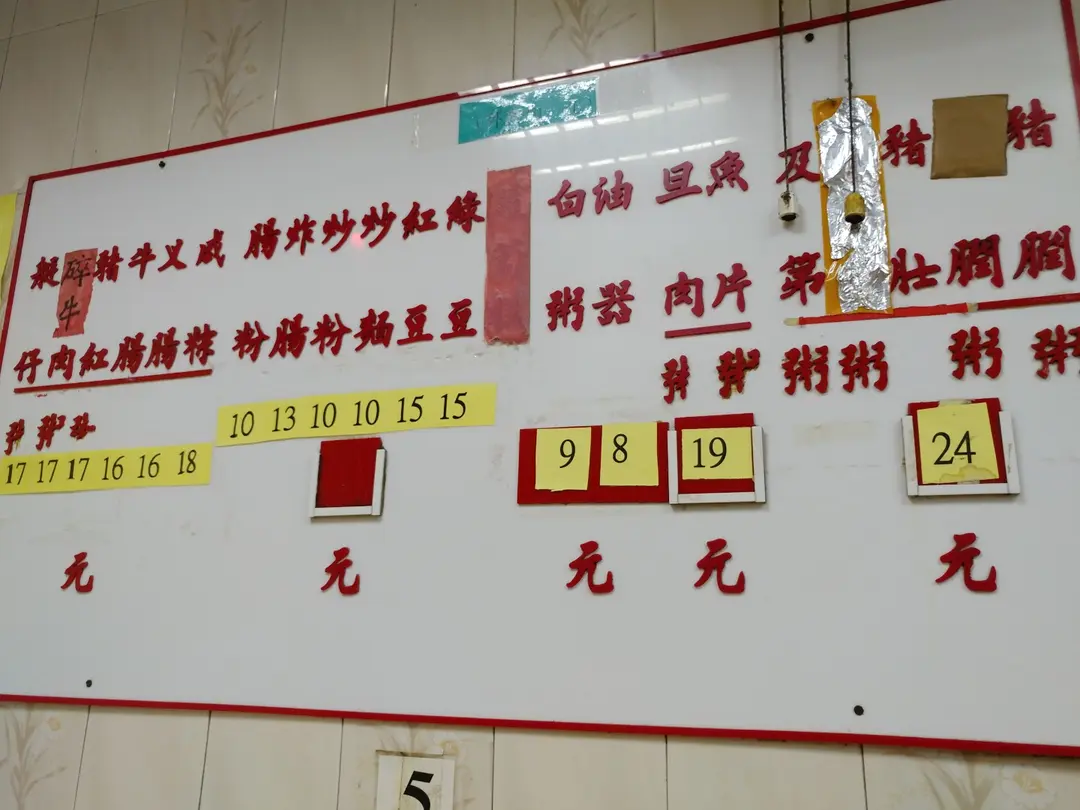 豬膶粥
膶粥
豬肚粥
及第粥
24
元
魚片粥
旦肉粥
19
元
油器
白粥
9 8
元
綠豆
紅豆
炒麵
炒粉
炸腸
腸粉
10 13 10 10 15 15
元
咸粽
义腸
牛腸
豬紅粥
碎牛肉粥
艇仔粥
17 17 17 16 16 18
元
5